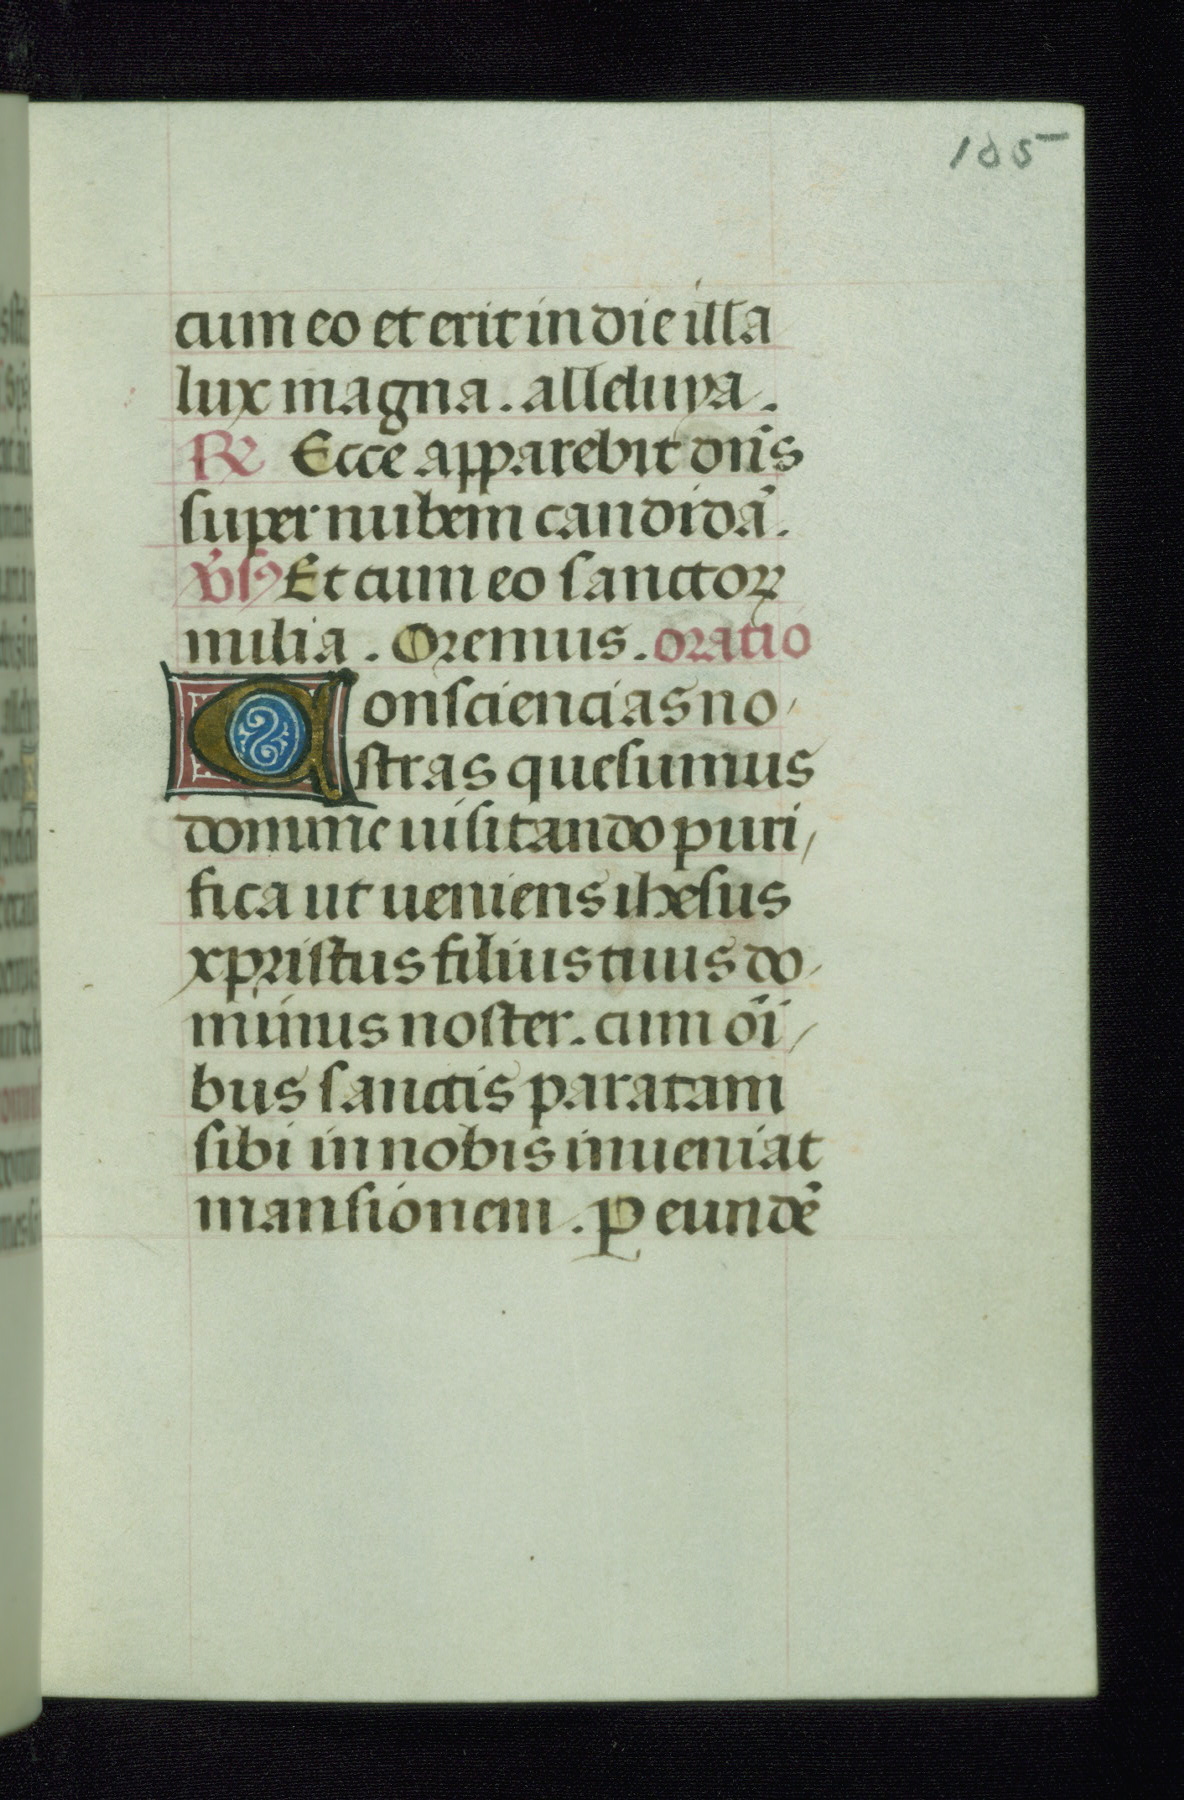 105
cum eo et erit in die illa
lux magna. alleluya.
℟ Ecce apparebit dñs
super nubem candidā.
v̄sꝰ Et cum eo sanctoꝝ
milia. Oremus. oratio
Consciencias no
stras quesumus
domine uisitando puri
fica ut ueniens ihesus
xpristus filius tuus do
minus noster. cum oī
bus sanctis paratam
sibi in nobis inueniat
mansionem. ꝑ eundē